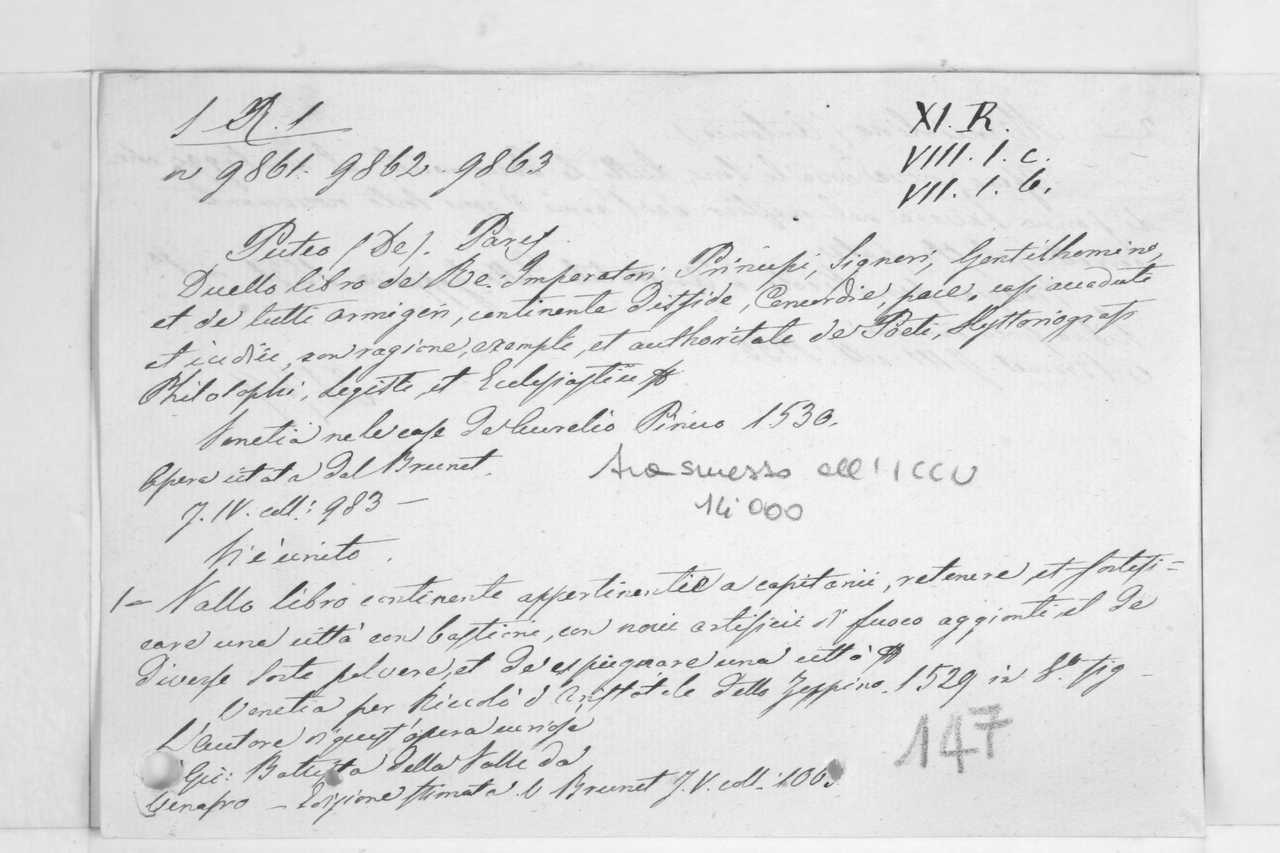 1 R. 1
XI. R.
n 9861. 9862. 9863
VIII. I. c.
VII. I. b.
Puteo (De). Paris.
Duello libro de Re. Imperatori Principi, Signori, Gentilhomini,
et de tutti armigeri, continente disfide, Concordie, pace, casi accadenti
et iudicii con ragione, exempli, et authoritate de Poeti, Hystoriographi
Philosophi, Legisti, et Ecclesiastici
Venetia nele case de Aurelio Pincio 1530.
Opera citata dal Brunet.
T. IV. coll: 983 —
trasmesso all'ICCU
14000
Vi è unito.
1 — Vallo libro continente appertinentie a capitanii, retenere et fortifi=
care una città con bastioni, con novi artificii di fuoco aggionti, et de
diverse sorte polvere, et de espugnare una città
Venetia per Niccolò d'Aristotele detto Zoppino. 1529 in 8.° fig —
L'autore di quest'opera curiosa
è Gio: Battista della Valle da
Venafro — Edizione stimata. V. Brunet T. V. coll:
147